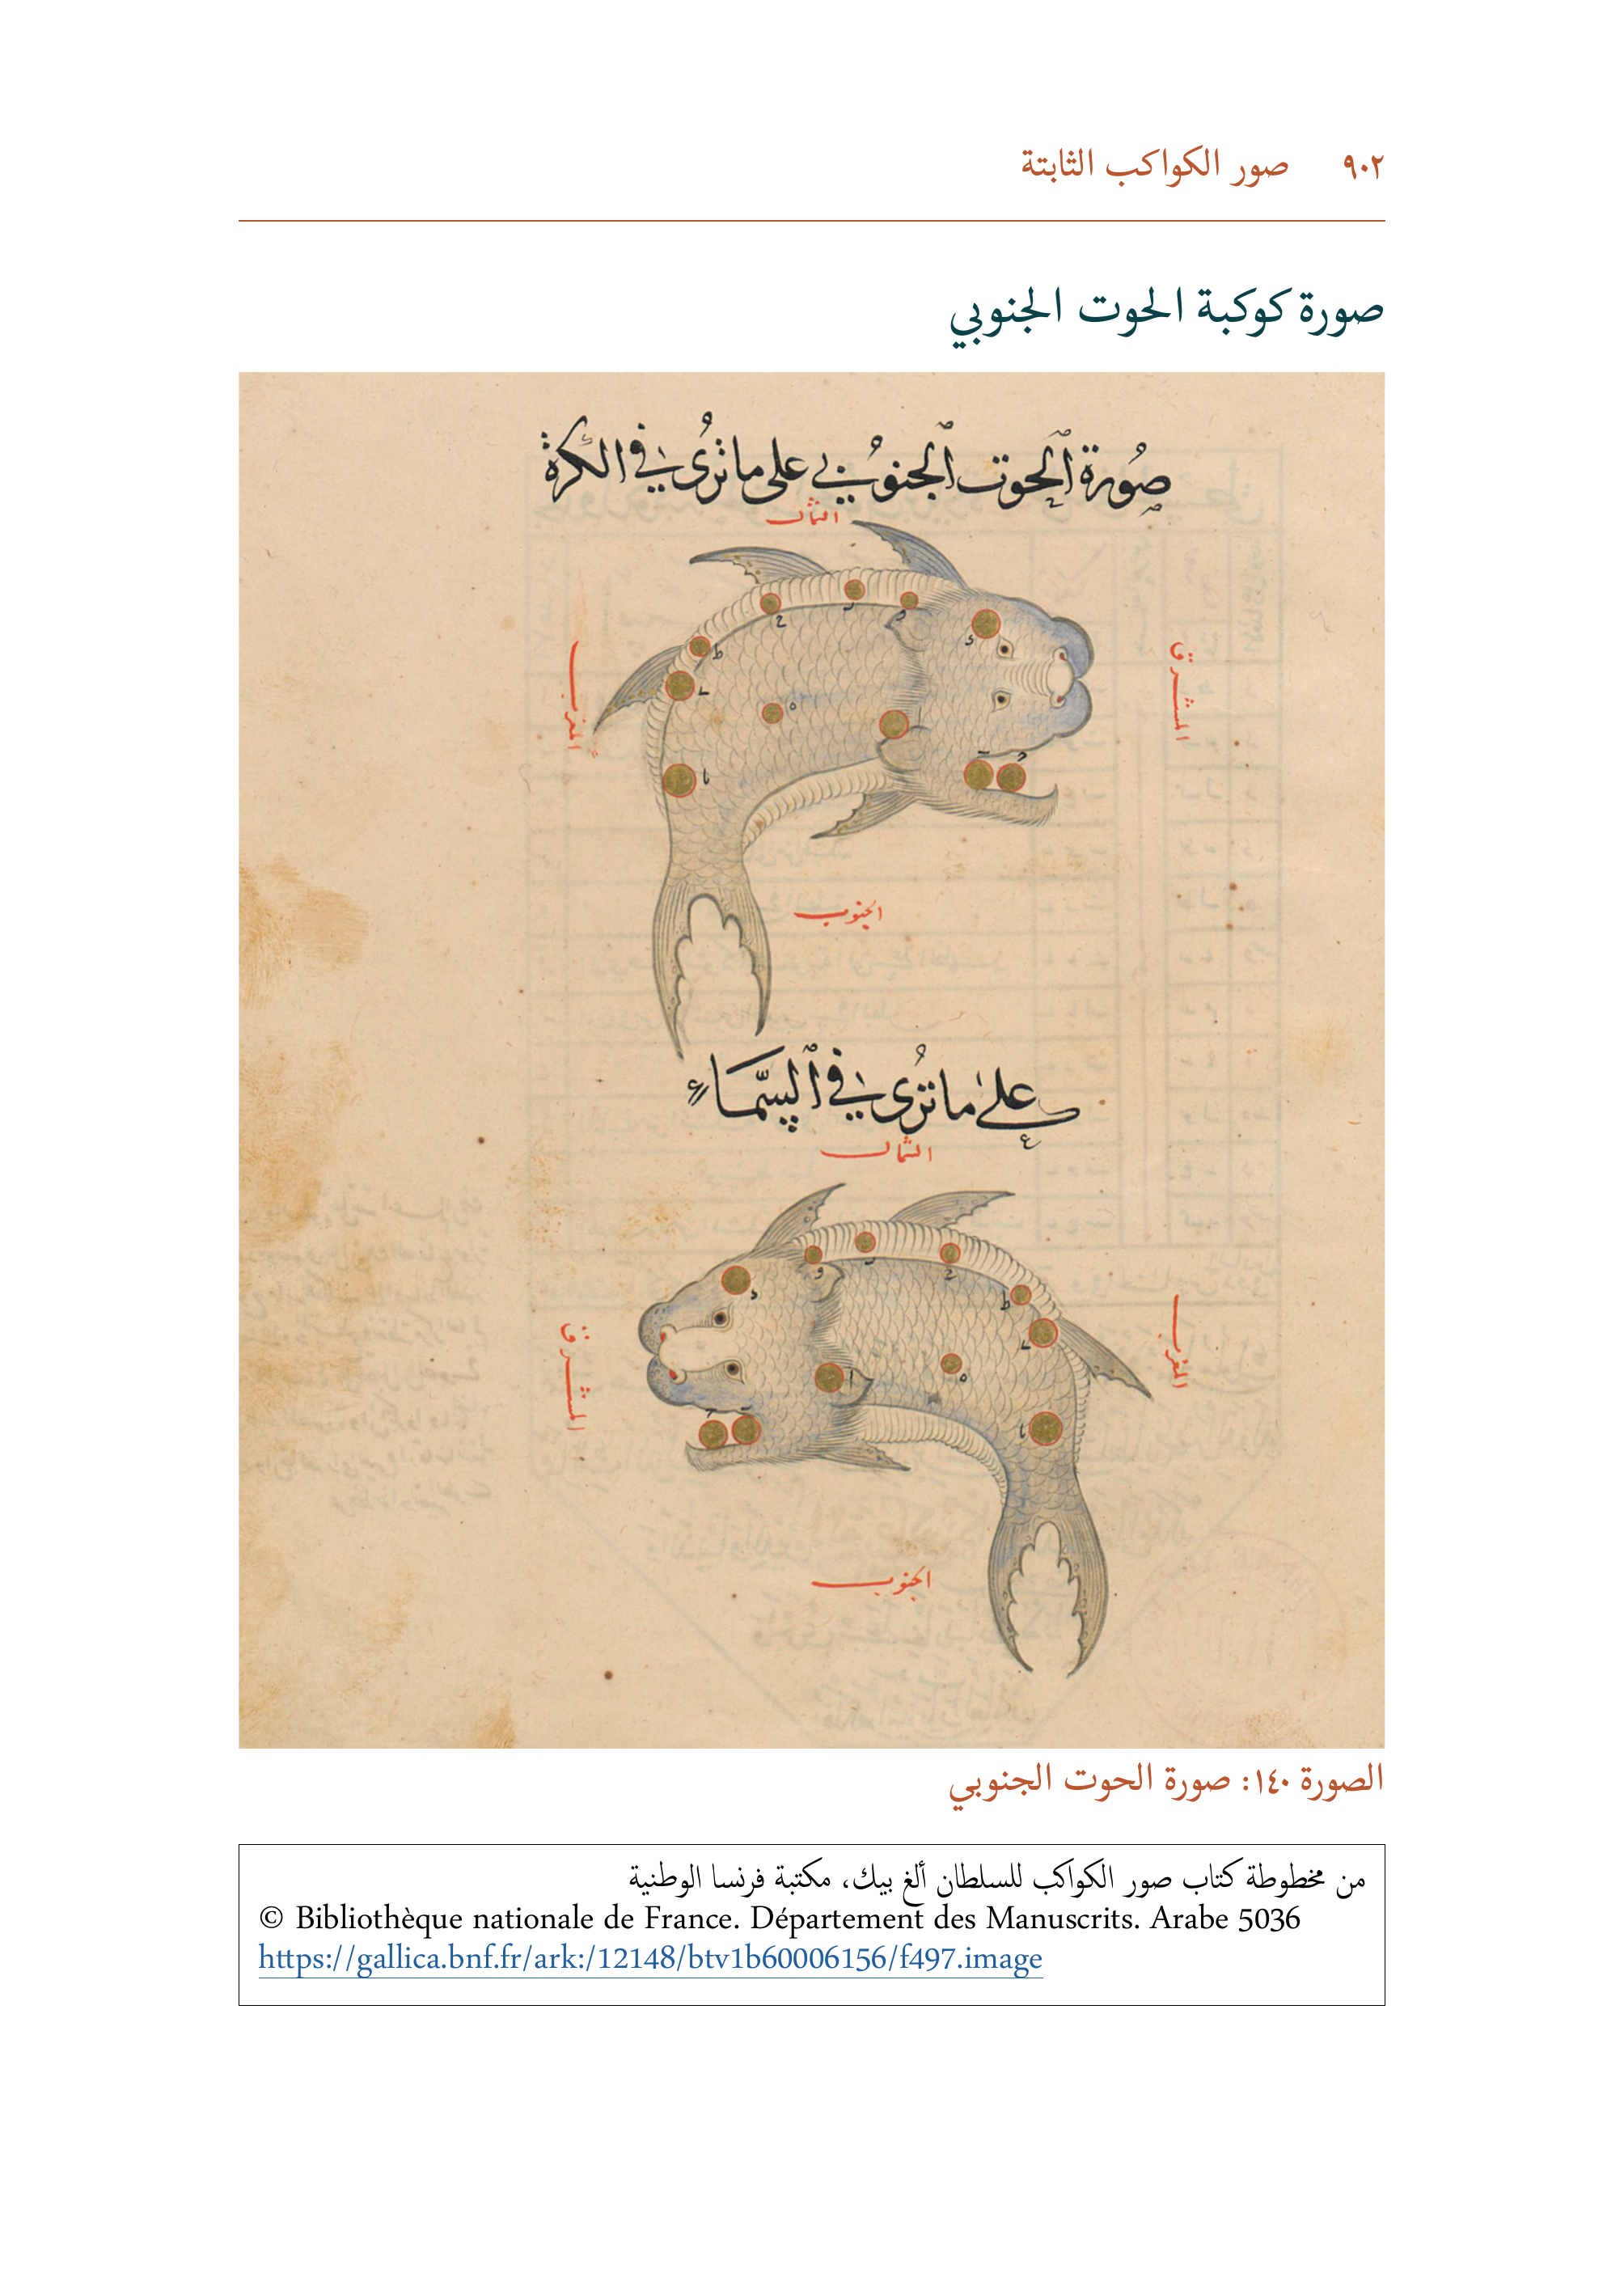 ٩٠٢ صور الكواكب الثابتة
صورة كوكبة الحوت الجنوبي
صُورة الحوت الجنوبي على ما تُرى في الكرة
الشمال
المغرب
المشرق
الجنوب
على ما تُرى في السّماء
الشمال
المشرق
المغرب
الجنوب
الصورة ١٤٠: صورة الحوت الجنوبي
من مخطوطة كتاب صور الكواكب للسلطان ألغ بيك، مكتبة فرنسا الوطنية
© Bibliothèque nationale de France. Département des Manuscrits. Arabe 5036
https://gallica.bnf.fr/ark:/12148/btv1b60006156/f497.image